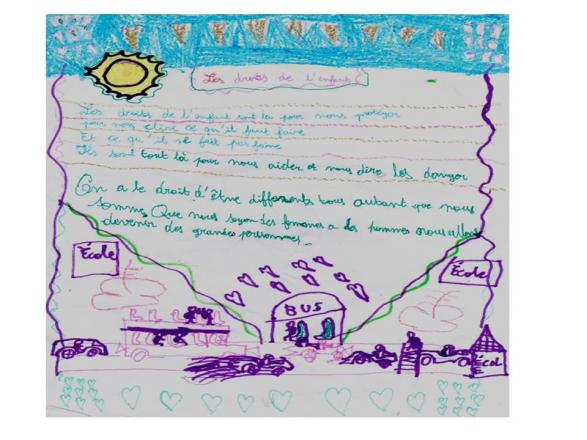 Les droits de l'enfant
Les droits de l'enfant sont la pour nous protéger
pour nous dire ce qu'il faut faire
Et ce qu'il ne faut pas faire
Ils sont tout là pour nous aider et nous dire les danger
On a le droit d'être différents tous autant que nous
somme. Que nous soyon des femmes a des hommes nous allons
devenir des grandes personnes.
École
École
BUS
École